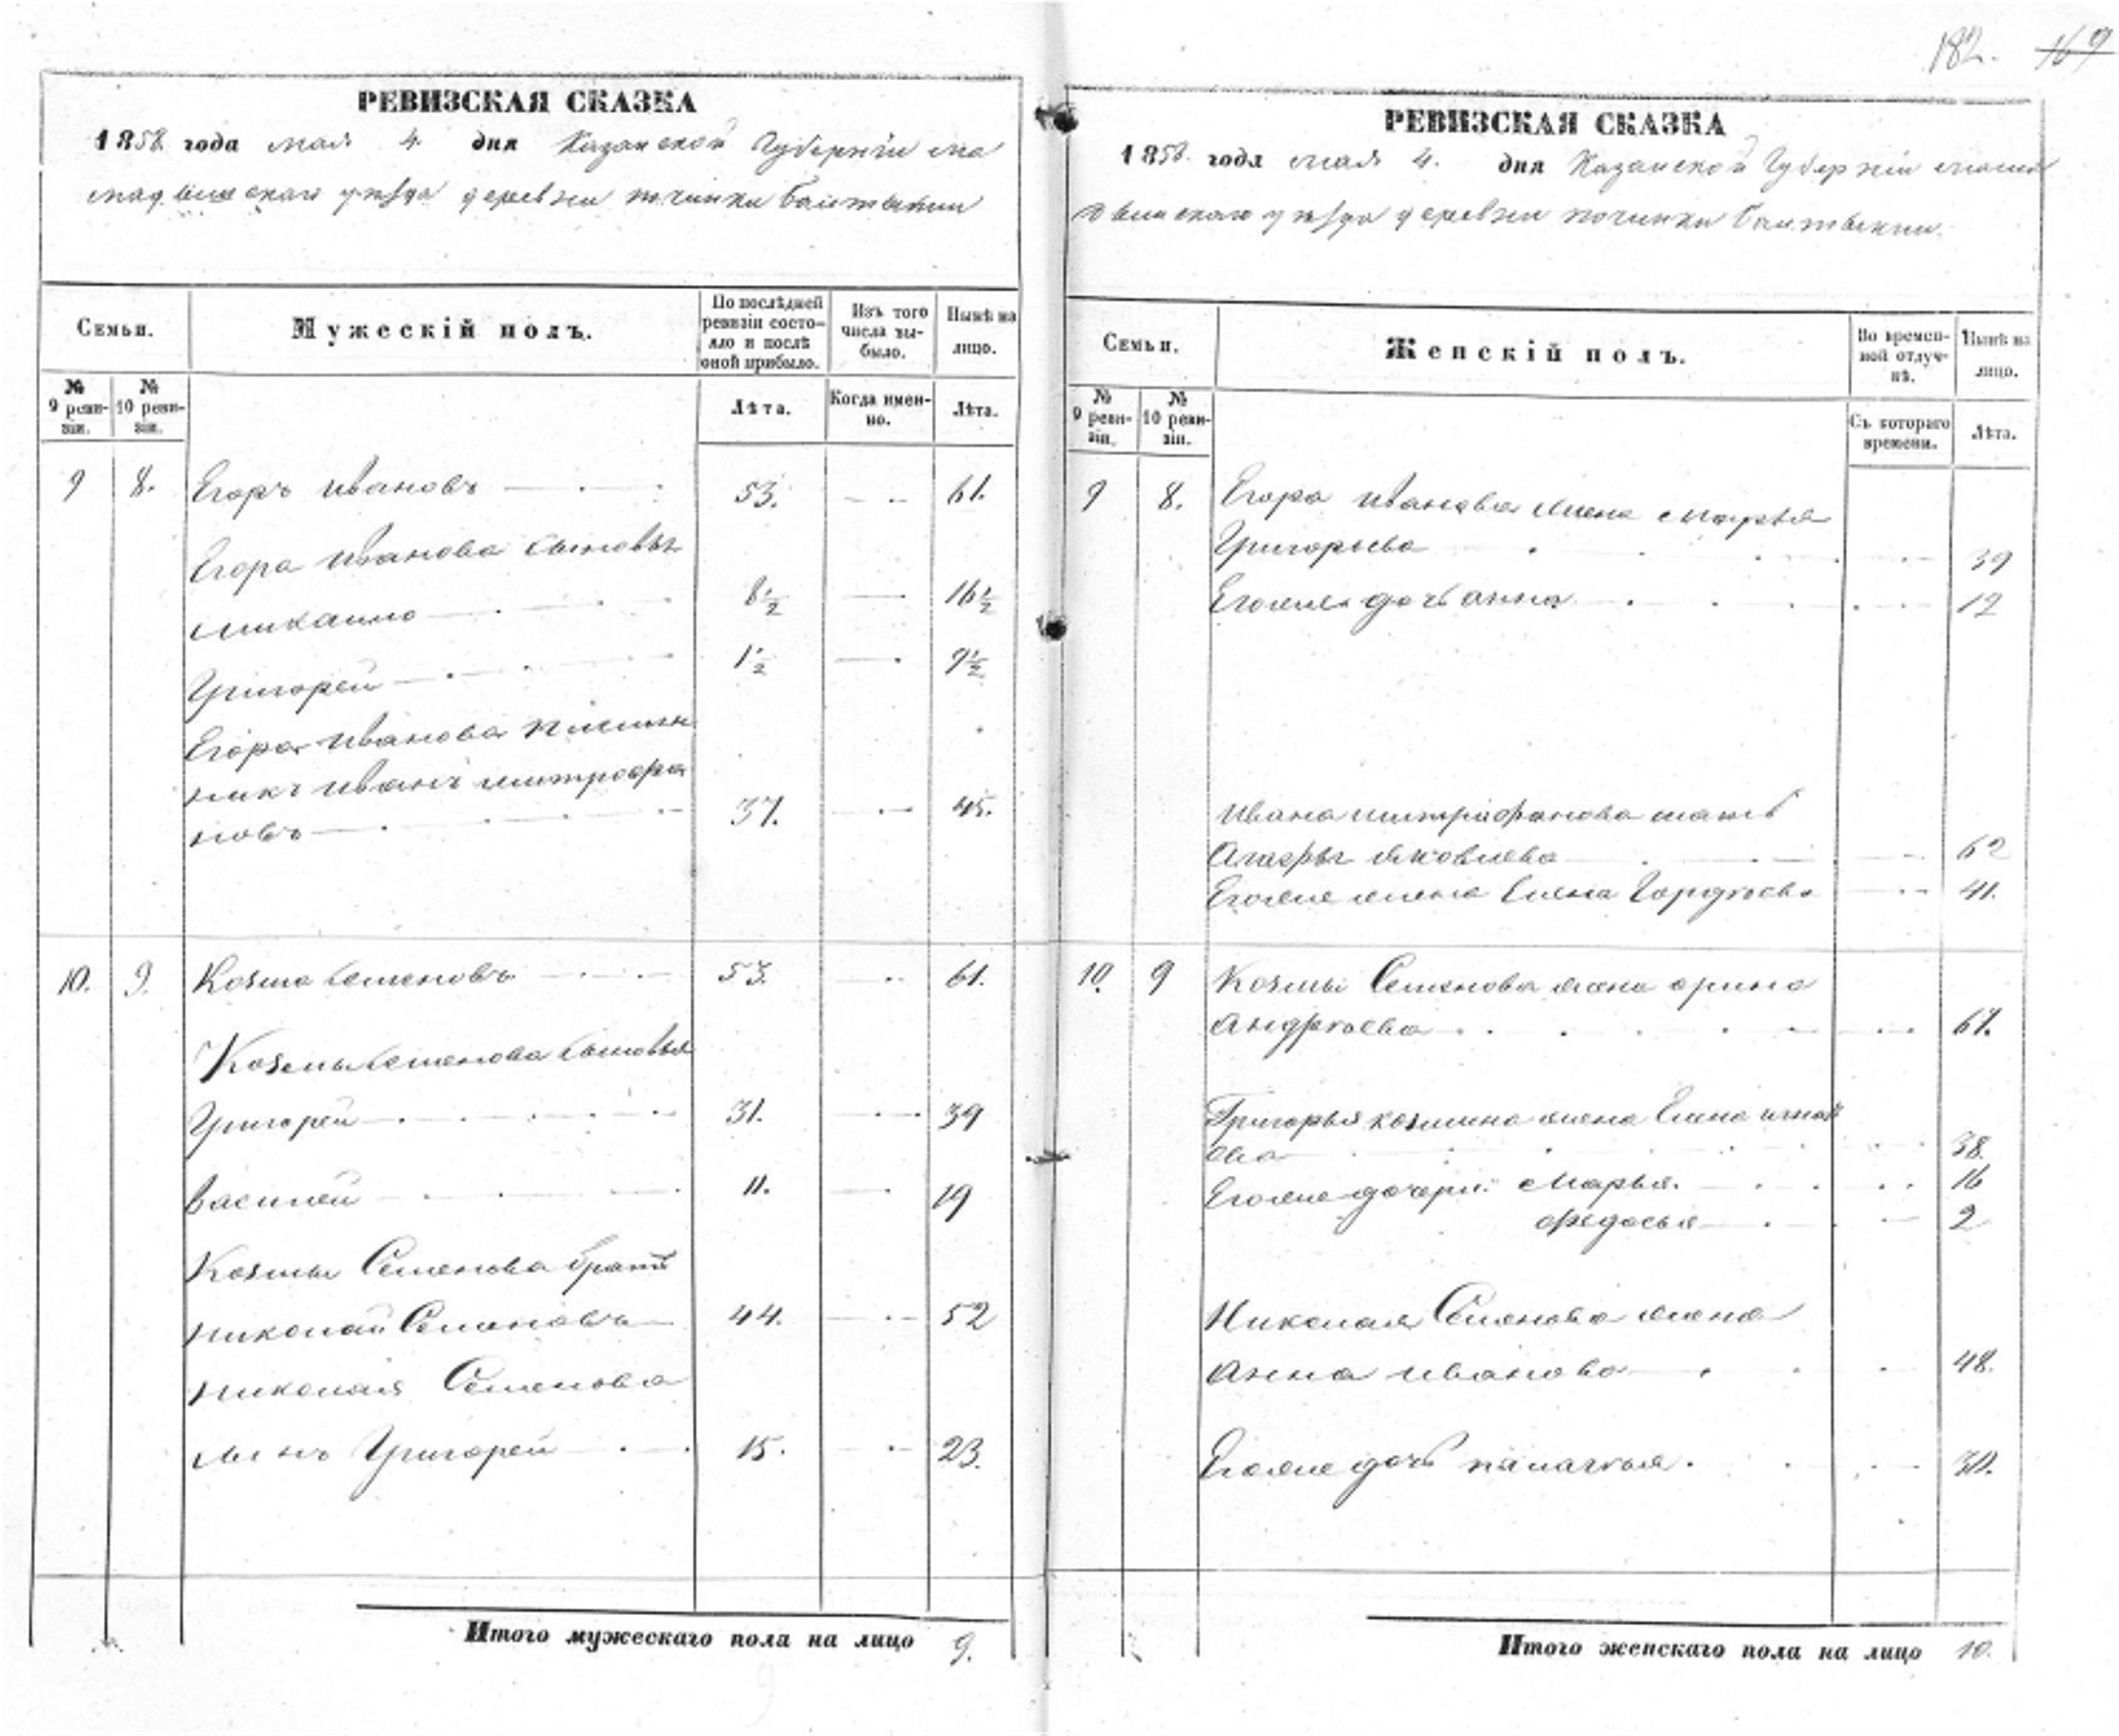 182. 169
РЕВИЗСКАЯ СКАЗКА
1858 года мая 4. дня Казанской Губернiи ма
мадышскаго уѣзда деревни починки
Семьи.
Мужескій полъ.
По послѣдней ревизіи состояло и послѣ оной прибыло.
Изъ того числа выбыло.
Нынѣ на лицо.
№ 9 ревизіи.
№ 10 ревизіи.
Лѣта.
Когда именно.
Лѣта.
9 8. Егоръ Ивановъ 53. 61.
Егора Иванова сыновья
Михаило 8½ 16½
Григорей 1½ 9½
Егора Иванова племян
никъ Иванъ митрофа
новъ 37. 45.
10. 9. Козма Семеновъ 53. 61.
Козмы Семенова сыновья
Григорей 31. 39
Василей 11. 19
Козмы Семенова братъ
Николай Семеновъ 44. 52
Николая Семенова
сынъ Григорей 15. 23.
Итого мужескаго пола на лицо 9.
РЕВИЗСКАЯ СКАЗКА
1858. года мая 4. дня Казанской Губернiи мама
дышскаго уѣзда деревни починки
Семьи.
Женскій полъ.
Во временной отлучкѣ.
Нынѣ на лицо.
№ 9 ревизіи.
№ 10 ревизіи.
Съ котораго времени.
Лѣта.
9 8. Егора Иванова жена Марья
Григорьева 39
Егоже дочь анна 12
Ивана митрофанова мать
Агафья Яковлева 62
Егоже жена Елена Гордѣева 41.
10. 9 Козмы Семенова жена орина
Андрѣева 67.
Григорья козмина жена Елена
38.
Егоже дочери: Марья. 16
Федосья 2
Николая Семенова жена
Анна Иванова 48.
Егоже дочь пелагѣя. 30.
Итого женскаго пола на лицо 10.